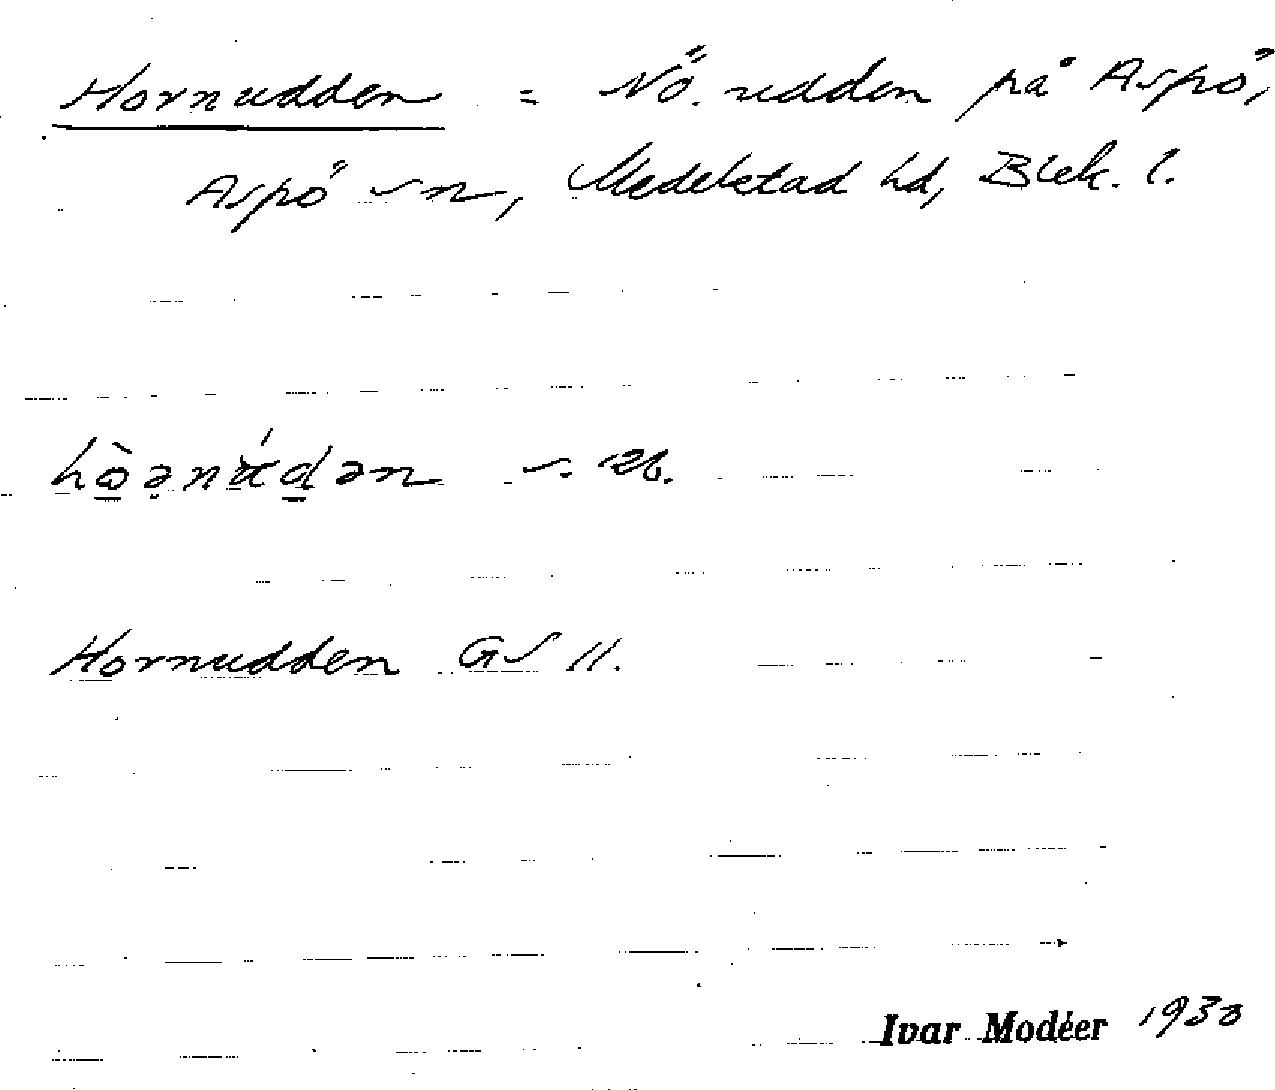 Hornudden = Nö. udden på Aspö,
Aspö sn, Medelstad hd, Blek. l.
Hornudden GS 11.
Ivar Modéer 1930